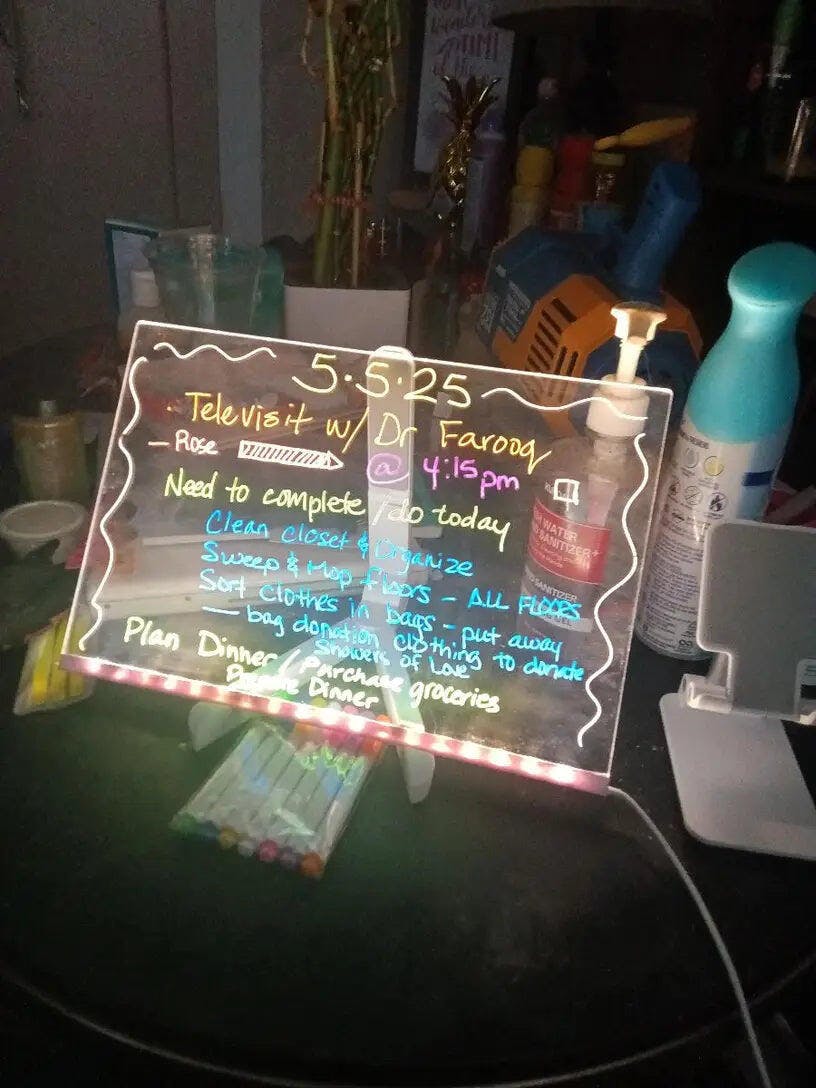 5.5.25
· Televisit w/ Dr Farooq
— Rose @ 4:15pm
Need to complete / do today
Clean closet & Organize
Sweep & Mop Floors - ALL FLOORS
Sort clothes in bags - put away
— bag donation clothing to donate
Showers of Love
Plan Dinner / Purchase groceries
Prepare Dinner
WATER
SANITIZER+
SANITIZER